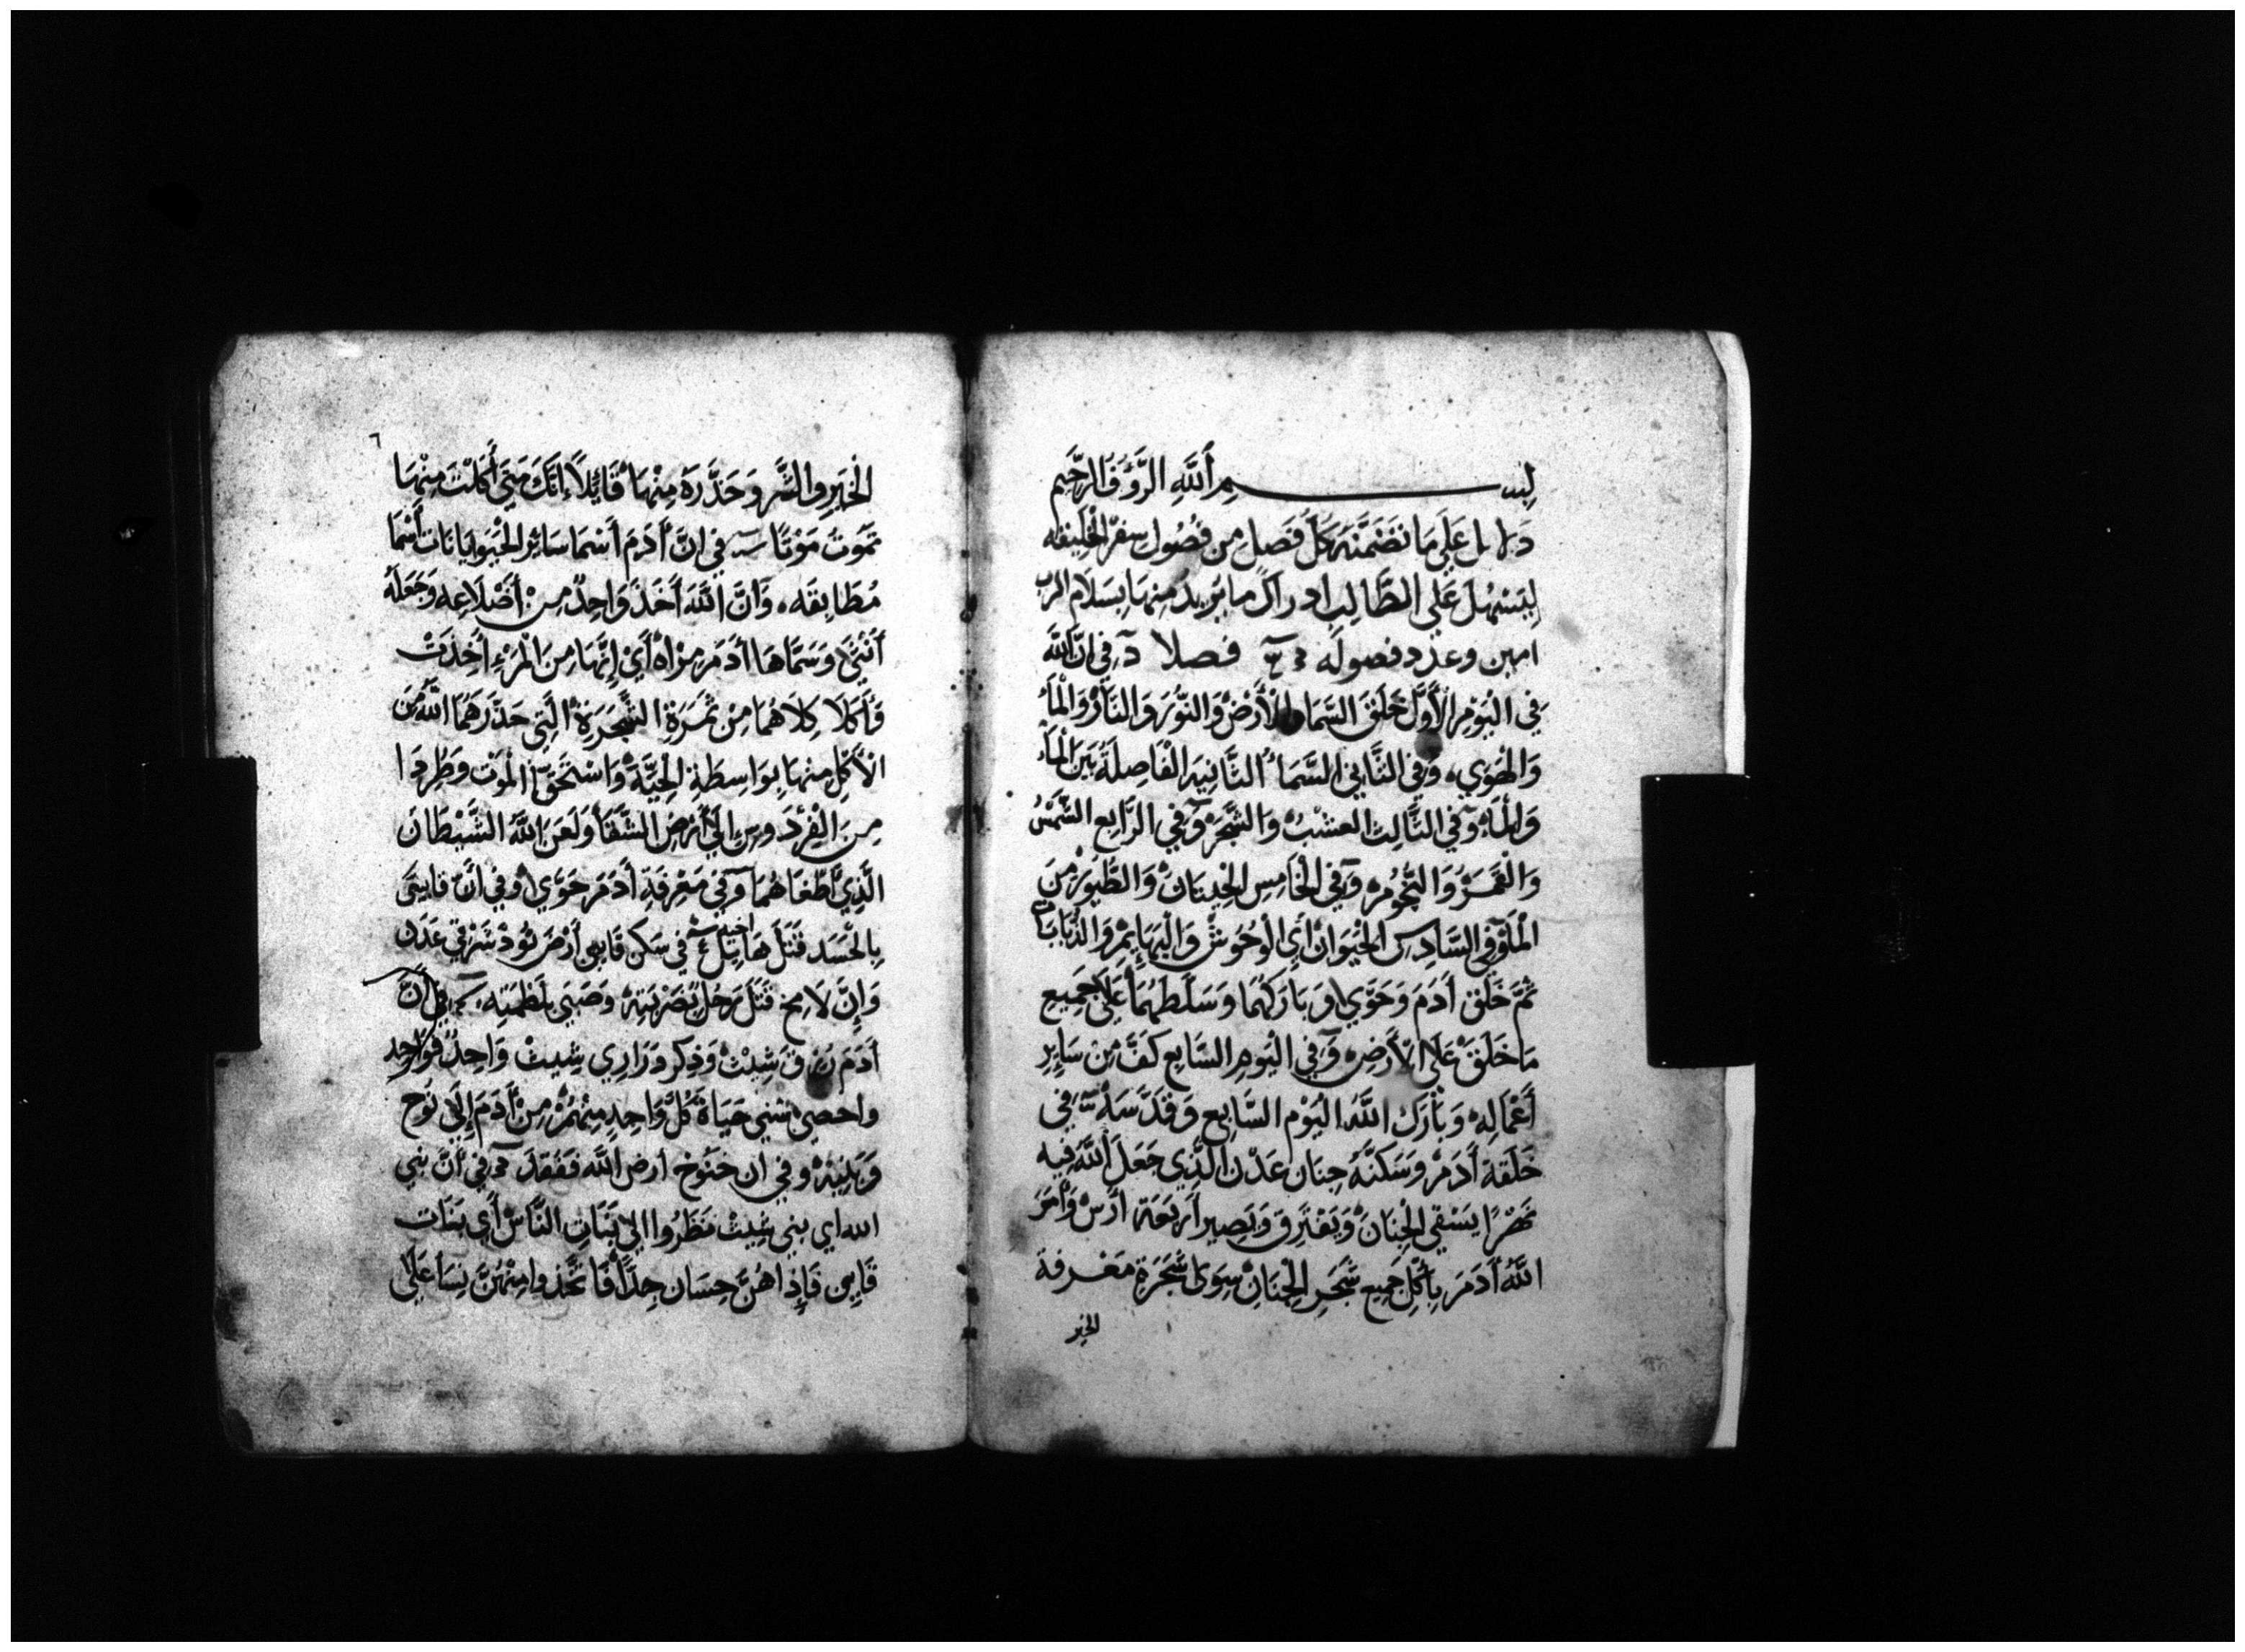 بِســـــــمِ أَللَّهِ الرَّؤُفُ الرَّحِيم
دَلايل عَلَي مَا تضَمَّنَهُ كُلُّ فَصَل مِن فُصُول سِفرْ الْخَلِيقه
لِيَسْهُلَ عَلَي الطَّالِب ادراك ما يُريدُ مِنهَا بِسَلَام الرب
امين وعدد فصوله فصلا في انَّ اللَّه
في اليَوْمِ الْأَوَّل خَلَقَ السَّما والْأَرْضْ وَالنُّورْ وَالنَّارْ وَالْمَاءْ
وَالهَوَي، وَفي الثَّاني السَّمَاءُ الثَّانِيَه الْفَاصِلَةُ بَين الْمَاءْ
وَالْمَاءِ وفي الثَّالِث العشْبُ وَالشَّجَرْ وَفي الرَّابِع الشَّمْسْ
وَالْقَمَرْ وَالنُّجُومْ وَفي الْخَامِس الحِيتَانْ وَالطُّيُورْ مِنَ
الْمَاءْ وفي السَّادِس الْحَيَوَانْ أَي الْوُحُوشْ وَالْبَهَايِمْ وَالدَّبَابَات
ثمَّ خَلَقَ أَدَمَ وَحَوَّي وَبَارَكَهُمَا وَسَلَّطَهُمَا عَلَي جَمِيع
مَا خَلَقْ عَلَي الْأَرضِ وَفي الْيَومِ السَّابِع كَفَّ مِن سَايِرِ
أَعْمَالِهْ وَبَارَكَ اللَّهُ اليَوْم السَّابِع وَقَدَّسَهْ في
خَلْقَة أَدَمْ وَسَكَنَهُ جِنَان عَدْن الَّذِي جَعَلَ أَللَّهُ فِيه
نَهْرًا يَسْقِي الْجِنَانْ وَيَفْتَرِق وَيَصِير أَربَعَة أَرْسْ وَأَمَرَ
اللَّهُ أَدَمَ بِأَكْلِ جَمِيع شَجَرِ الْجِنَانْ سِوَي شَجَرَةِ مَعْرفة
الخير
٦
الْخَيرِ والشَّر وَحَذَّرَهُ مِنْهَا قَايْلاً إنَّكَ مَتَي أَكَلْتَ مِنْهَا
تَمُوتُ مَوْتًا في انَّ أَدَمَ أَسْمَا سَايْر الْحَيَوانَات أَسْمَا
مُطَابِقَه، وَانَّ اللَّهَ أَخَذَ وَاحِدْ مِنْ أَضْلَاعِه وَجَعَلَهُ
أُنْثَي وَسَمَّاهَا أَدَمَ مرْأَه أَيْ إنَّهَا مِنَ الْمَرْءِ أُخِذَتْ
فَأَكَلَا كِلَاهُمَا مِنْ ثَمْرَةِ الشَّجَرَةِ الَّتِي حَذَّرَهُمَا اللَّهُ مِن
الْأَكْلِ مِنْهَا بِوَاسِطَةِ الْحِيَّةْ وَاسْتَحَقَّا الْمَوْت وَطُرِدَا
مِنَ الفِرْدَوس إلَي أَرْضِ الشَّقَا وَلَعَنَ اللَّهُ الشَّيْطَانَ
الَّذِي أَطْغَاهُمَا وفي مَعْرِفَةِ أَدَمَ حَوَّي وفي انَّ قايِين
بِالْحَسَد قَتَلَ هَابِيل اخيه في سَكن قَايين أَرْضَ نُودْ شَرْقي عَدَن
وَإنَّ لَامِخ قَتَلَ رَجُلْ بِضَرْبَتِهْ وَصَبَي بِلَطْمَتِه، في أَنَّ
أَدَمَ رُزقَ شِيثْ وَذِكر دَرَارِي شِيث وَاحِدْ فَوَاحِد
واحصي سني حَيَاة كُلّ وَاحِدٍ مِنهُمْ مِنْ أَدَمَ إلَي نُوح
وَبَنِيهْ وفي ان خَنُوخ أرضَ اللَّه فَفُقدَ في أَنَّ بَنِي
الله اي بني شِيثْ نَظَرُوا إلَي بَنَاتِ النَّاسْ أَي بَنَات
قَايين فَإِذا هُنَّ حِسَان جِدًّا فَاتَّخَذوا مِنْهُنَّ نِسَا عَلَي